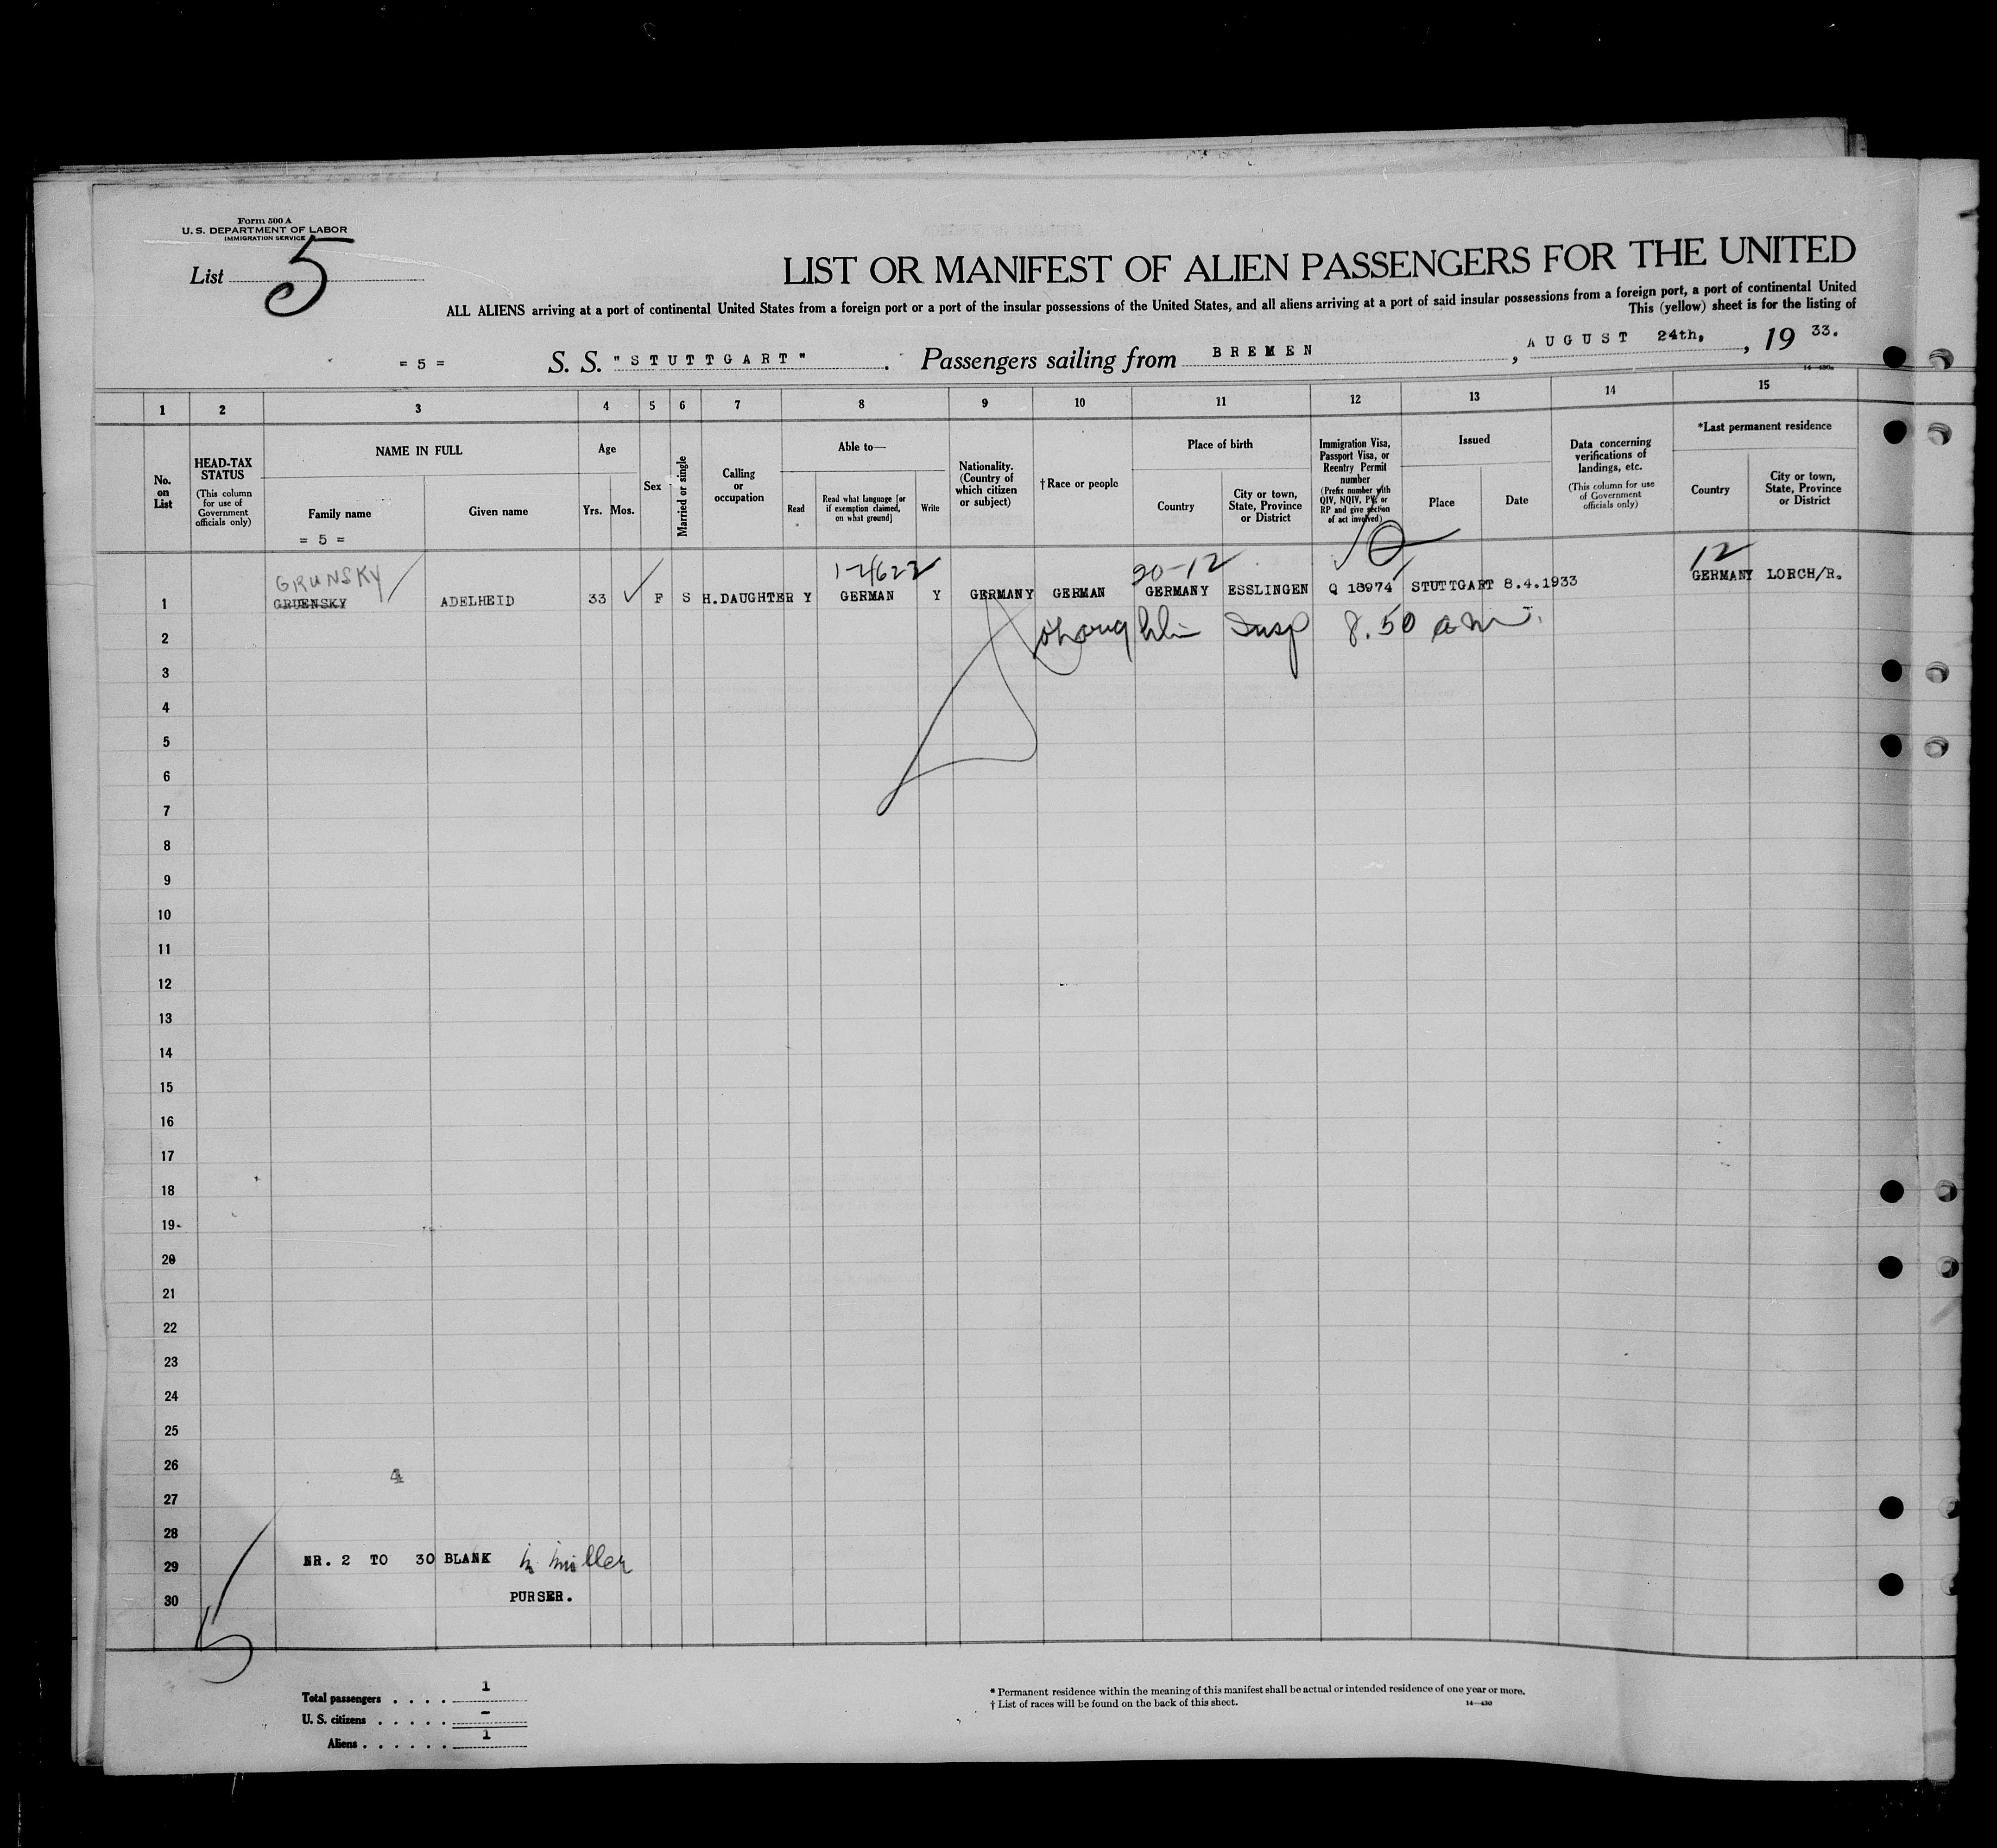 Form 500 A
U. S. DEPARTMENT OF LABOR
IMMIGRATION SERVICE
List 5
LIST OR MANIFEST OF ALIEN PASSENGERS FOR THE UNITED
ALL ALIENS arriving at a port of continental United States from a foreign port or a port of the insular possessions of the United States, and all aliens arriving at a port of said insular possessions from a foreign port, a port of continental United
This (yellow) sheet is for the listing of
= 5 = S. S. "STUTTGART" . Passengers sailing from BREMEN , AUGUST 24th, , 19 33.
14—430a
1 2 3 4 5 6 7 8 9 10 11 12 13 14 15
No. on List
HEAD-TAX STATUS
(This column for use of Government officials only)
NAME IN FULL
Family name
Given name
= 5 =
Age
Yrs. Mos.
Sex
Married or single
Calling or occupation
Able to—
Read
Read what language [or if exemption claimed, on what ground]
Write
Nationality. (Country of which citizen or subject)
†Race or people
Place of birth
Country
City or town, State, Province or District
Immigration Visa, Passport Visa, or Reentry Permit number
(Prefix number with QIV, NQIV, PV, or RP and give section of act involved)
Issued
Place
Date
Data concerning verifications of landings, etc.
(This column for use of Government officials only)
*Last permanent residence
Country
City or town, State, Province or District
GRUNSKY 1-4622 20-12 12
1 GRUENSKY ADELHEID 33 F S H.DAUGHTER Y GERMAN Y GERMANY GERMAN GERMANY ESSLINGEN Q 18974 STUTTGART 8.4.1933 GERMANY LORCH/R.
2 Insp 8.50 am.
3
4
5
6
7
8
9
10
11
12
13
14
15
16
17
18
19
20
21
22
23
24
25
26 4
27
28
29 NR. 2 TO 30 BLANK h. müller
30 PURSER.
5
Total passengers . . . . 1
U. S. citizens . . . . . -
Aliens . . . . . . 1
* Permanent residence within the meaning of this manifest shall be actual or intended residence of one year or more.
† List of races will be found on the back of this sheet. 14—430